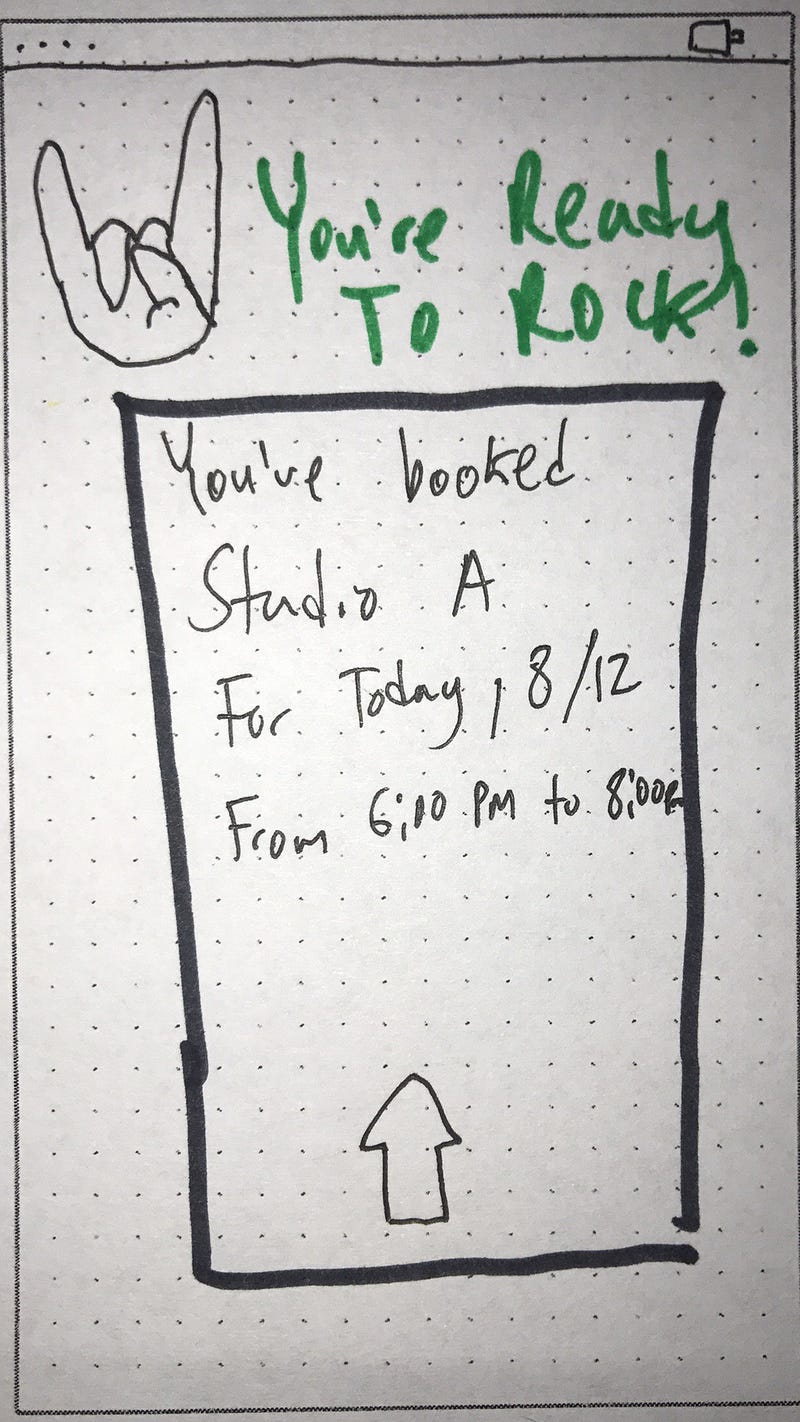 You're Ready
To Rock!
You've booked
Studio A
For Today, 8/12
From 6:00 PM to 8:00PM